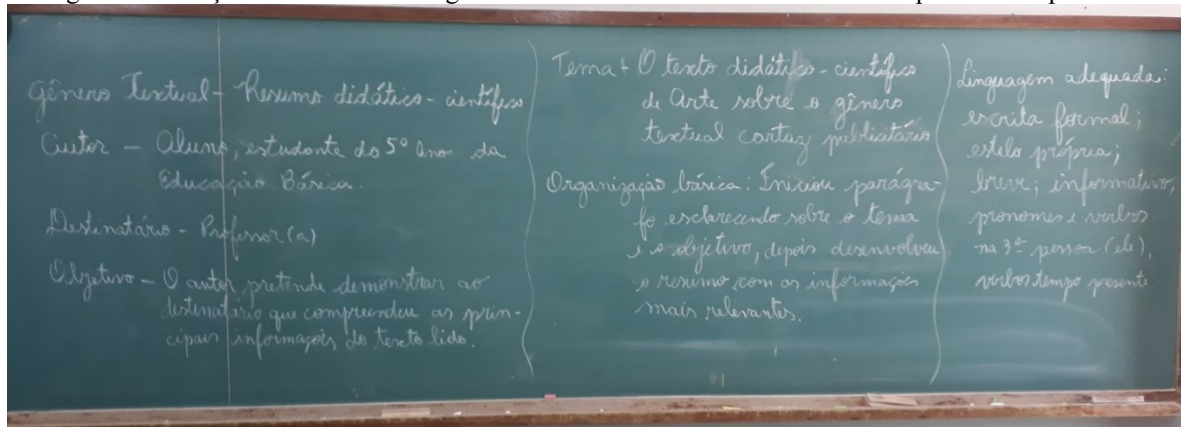 Gênero Textual - Resumo didático-científico
Autor - Aluno, estudante do 5º Ano da
Educação Básica.
Destinatário - Professor(a)
Objetivo - O autor pretende demonstrar ao
destinatário que compreendeu as prin-
cipais informações do texto lido.
Tema - O texto didático-científico
de Arte sobre o gênero
textual cartaz publicitário
Organização básica: Iniciou parágra-
fo esclarecendo sobre o tema
e o objetivo, depois desenvolveu
o resumo com as informações
mais relevantes.
Linguagem adequada:
escrita formal;
estilo própria;
breve; informativo,
pronomes e verbos
na 3ª pessoa (ele),
verbos tempo presente.